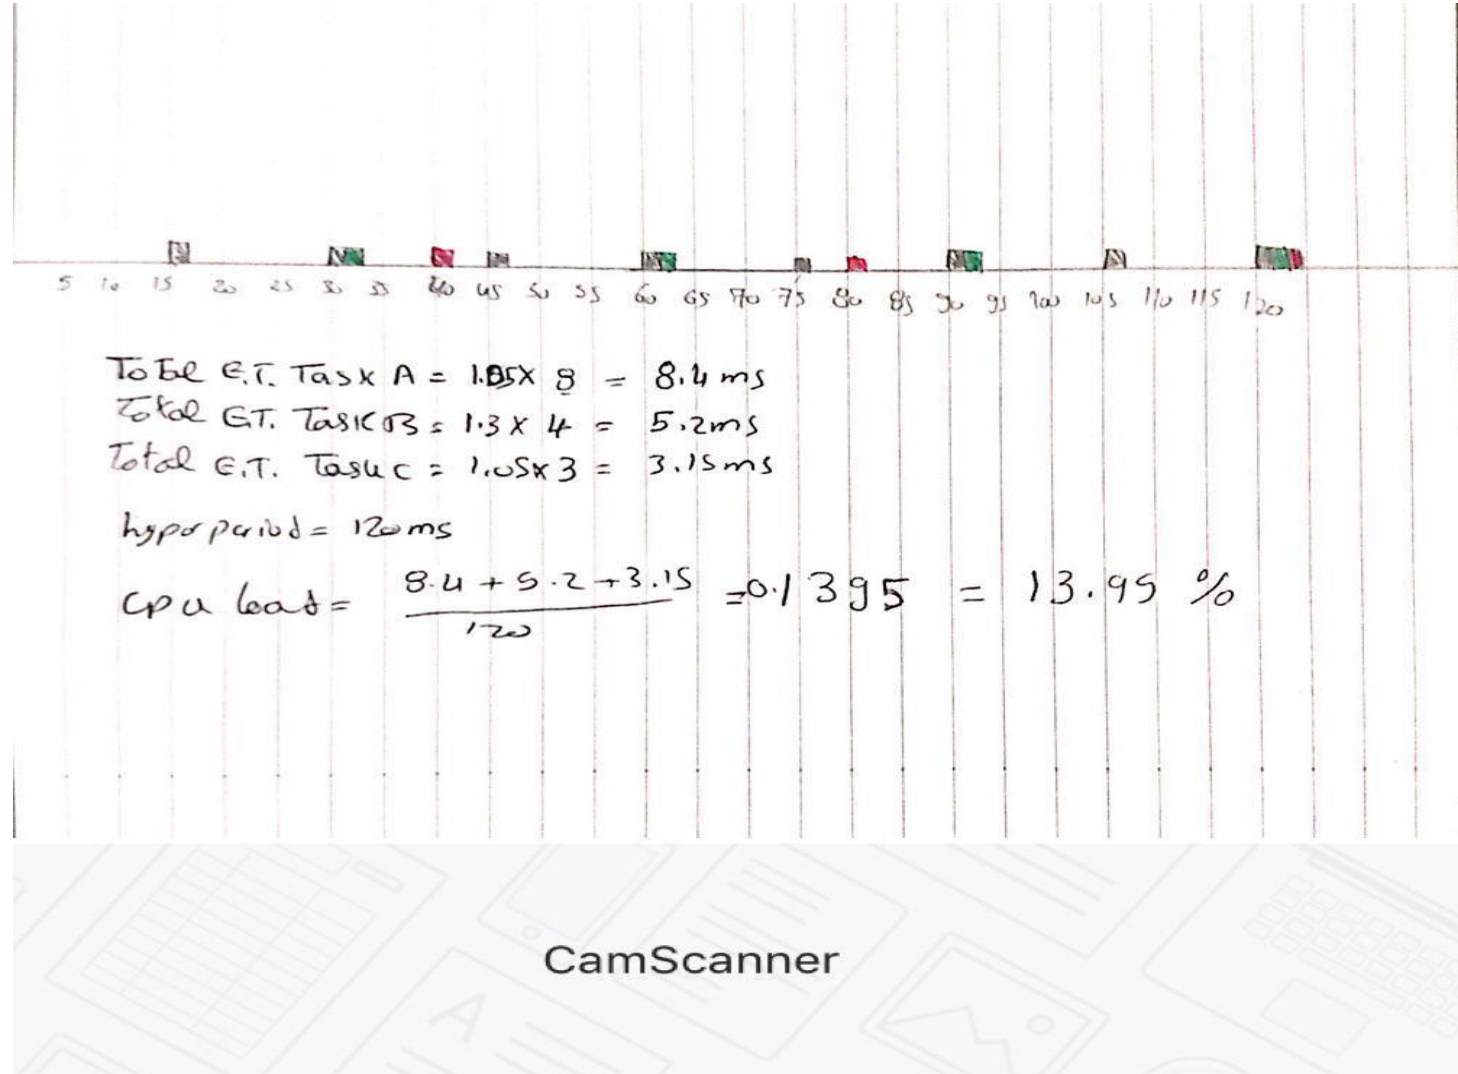 5 10 15 20 25 30 35 40 45 50 55 60 65 70 75 80 85 90 95 100 105 110 115 120
Total E.T. Task A = 1.05x 8 = 8.4 ms
Total E.T. Task B = 1.3 x 4 = 5.2ms
Total E.T. Task C = 1.05x3 = 3.15ms
hyper period = 120ms
cpu load = 8.4 + 5.2 + 3.15 =0.1395 = 13.95 %
120
CamScanner